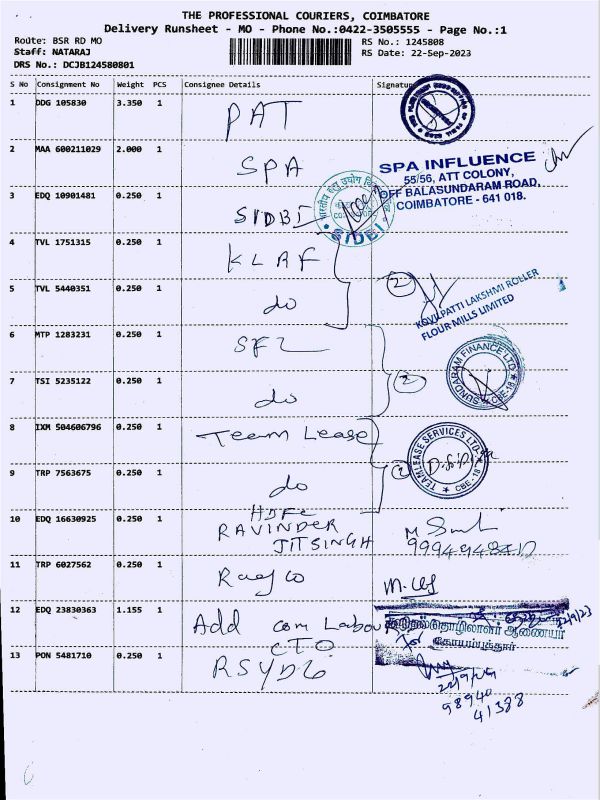 THE PROFESSIONAL COURIERS, COIMBATORE
Delivery Runsheet - MO - Phone No.:0422-3505555 - Page No.:1
Route: BSR RD MO RS No.: 1245808
Staff: NATARAJ RS Date: 22-Sep-2023
DRS No.: DCJB124580801
S No Consignment No Weight PCS Consignee Details Signature
1 DDG 105830 3.350 1 PAT
2 MAA 600211029 2.000 1 SPA
SPA INFLUENCE
55/56, ATT COLONY,
OFF BALASUNDARAM ROAD,
COIMBATORE - 641 018.
3 EDQ 10901481 0.250 1 SIDBI
SIDBI
4 TVL 1751315 0.250 1 KLRF
5 TVL 5440351 0.250 1 do
2
KOVILPATTI LAKSHMI ROLLER
FLOUR MILLS LIMITED
6 MTP 1283231 0.250 1 SFL
7 TSI 5235122 0.250 1 do
2
SUNDARAM FINANCE LTD
CBE-18
8 IXM 504606796 0.250 1 Team Lease
TEAMLEASE SERVICES LTD
CBE-18
9 TRP 7563675 0.250 1 do
HDFC
10 EDQ 16630925 0.250 1 RAVINDER
JITSINGH
11 TRP 6027562 0.250 1
12 EDQ 23830363 1.155 1 Add com Labour
கோயம்புத்தூர்
CTO
13 PON 5481710 0.250 1
98940
41388